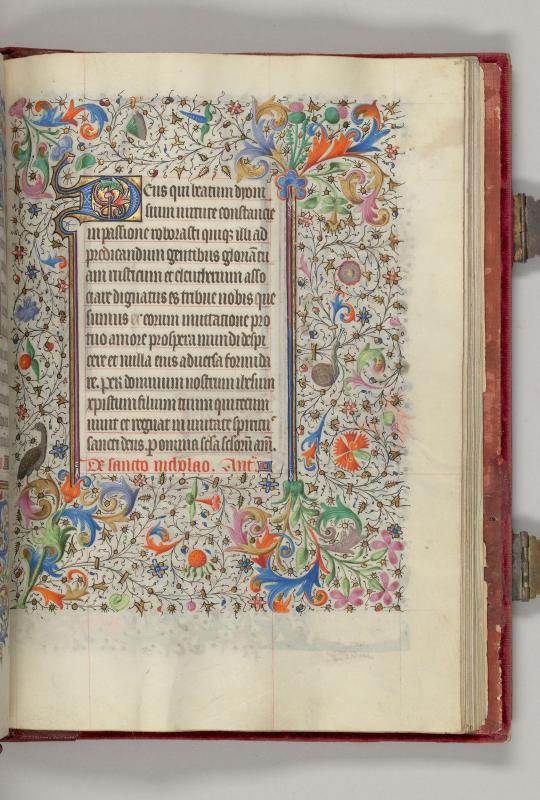 Deus qui beatum dyoni
sium virtute constantie
in passione roborasti quiq; illi ad
predicandum gentibus gloriā tu
am rusticum et eleutherium asso
ciare dignatus es tribue nobis que
sumus eorum imitatione pro
tuo amore prospera mundi despi
cere et nulla eius adversa formida
re. per dominum nostrum ihesum
xpistum filium tuum qui tecum
vivit et regnat in unitate spiritu
sancti deus. p omnia
De sancto nicolao. Anᵃ